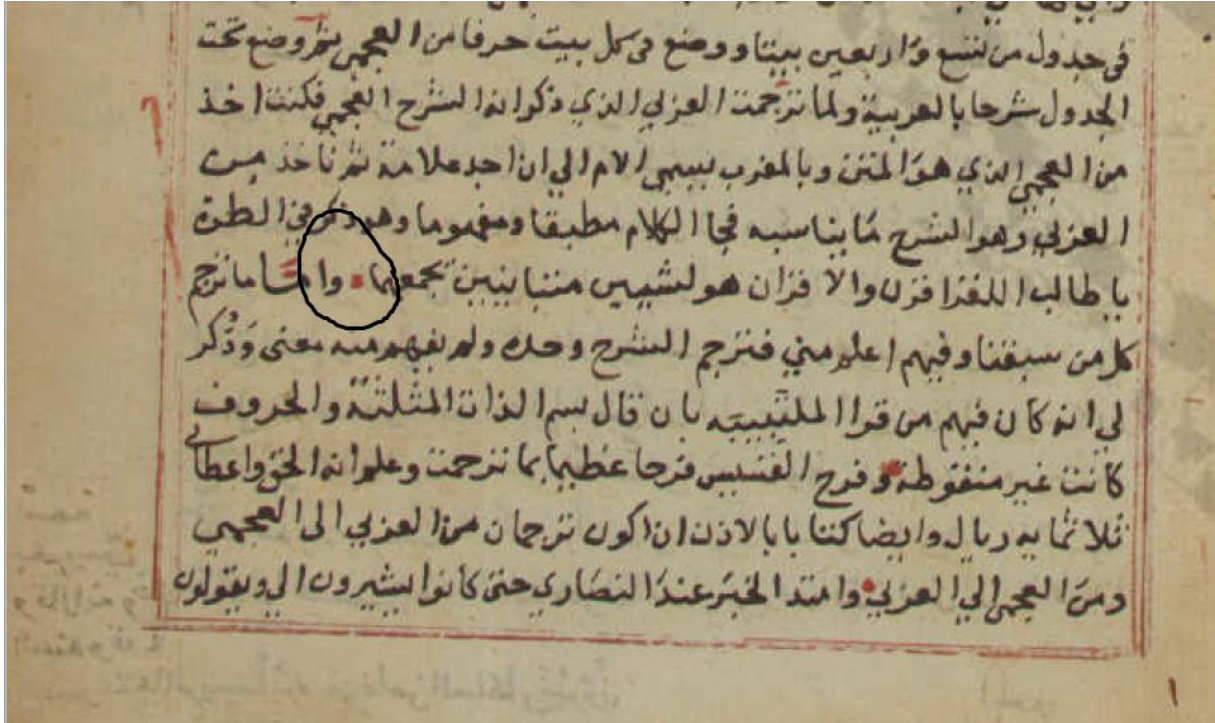 في جدول من تسع واربعين بيتا ووضع في كل بيت حرفا من العجمي ثم وضع تحت
الجدول شرحا بالعربية ولما ترجمت العربي الذي ذكر انه الشرح العجمي فكنت اخذ
من العجمي الذي هو المتن وبالمغرب يسمي الام الي ان اجد علامة ثم ناخذ من
العربي وهو الشرح ما يناسبه فجا الكلام مطبقا ومفهوما وهو ذكر في الطرة
يا طالب اللغز اقرن والاقران هو لشيين متباينين تجمعهما وانما ما ترجم
كل من سبقنا وفيهم اعلم مني فترجم الشرح وحده ولم يفهم منه معنى وذكر
لي انه كان فيهم من قرا بان قال بسم الذات المثلثة والحروف
كانت غير منقوطة وفرح القسيس فرحا عظيما بما ترجمت وعلم انه الحق واعطاني
ثلاثماية ريال وايضا كتابا بالاذن ان اكون ترجمان من العربي الى العجمي
ومن العجمي الي العربي وامتد الخبر عند النصاري حتى كانوا يشيرون الي ويقولون